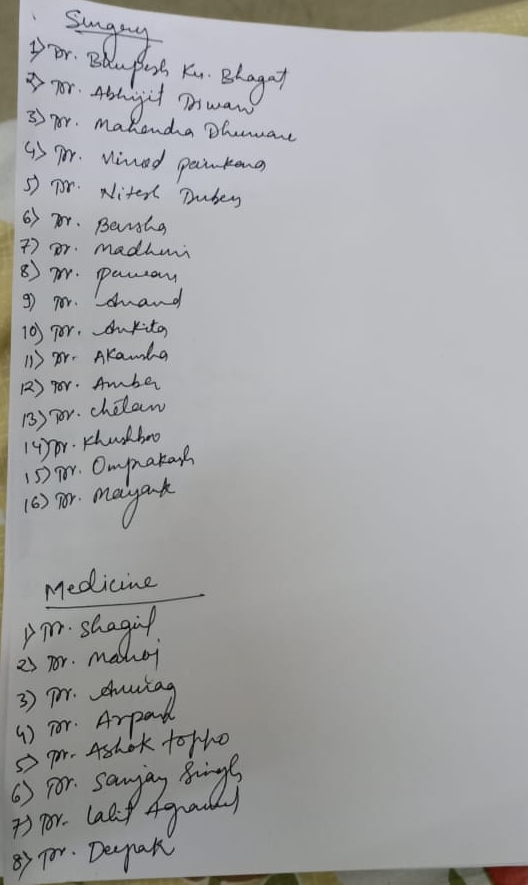 Surgery
1) Dr. Bhupesh Kr. Bhagat
2) Dr. Abhijit Diwan
3) Dr. Mahendra Dhurware
4) Dr. Vinod
5) Dr. Nitesh Dubey
6) Dr. Barsha
7) Dr. Madhuri
8) Dr. Pawan
9) Dr. Anand
10) Dr. Ankita
11) Dr. Akansha
12) Dr. Amber
13) Dr. Chetan
14) Dr. Khushboo
15) Dr. Omprakash
16) Dr. Mayank
Medicine
1) Dr. Shagil
2) Dr. Manoj
3) Dr. Anurag
4) Dr. Arpan
5) Dr. Ashok Toppo
6) Dr. Sanjay Singh
7) Dr. Lalit Agrawal
8) Dr. Deepak